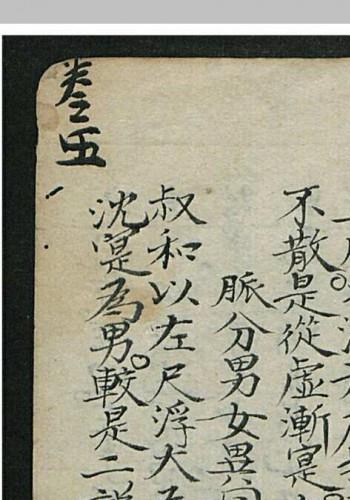 不散是從虛漸寔
脈分男女異同
叔和以左尺浮大
沈寔為男。較是二說
卷之五